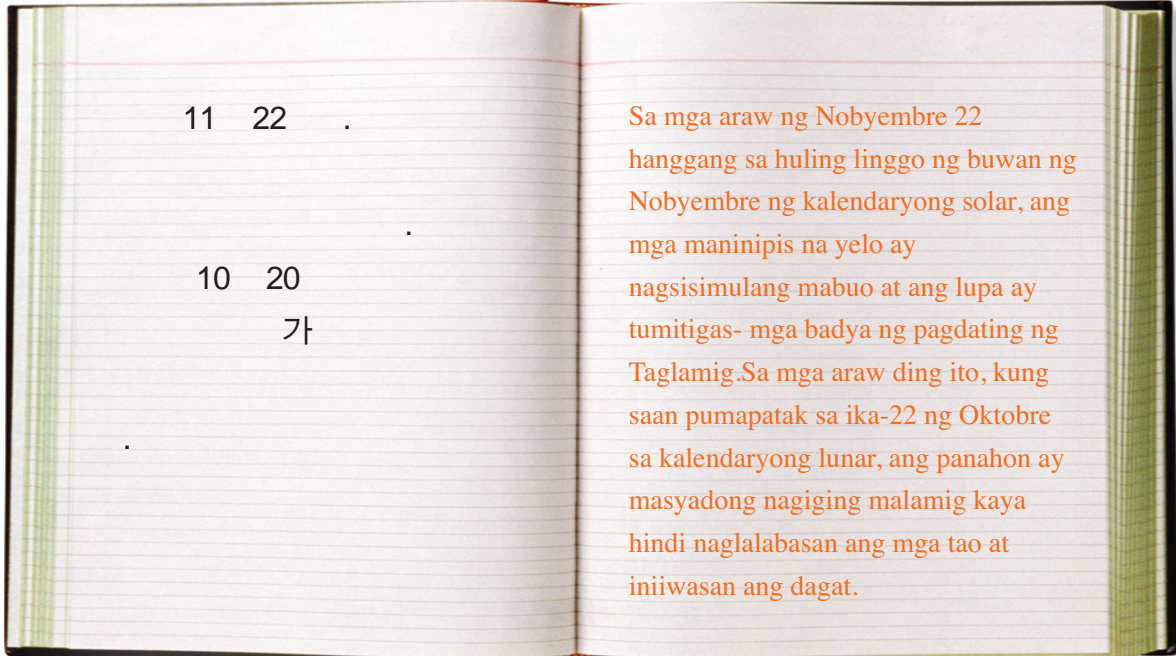 11 22 .
.
10 20
가
.
Sa mga araw ng Nobyembre 22
hanggang sa huling linggo ng buwan ng
Nobyembre ng kalendaryong solar, ang
mga maninipis na yelo ay
nagsisimulang mabuo at ang lupa ay
tumitigas- mga badya ng pagdating ng
Taglamig.Sa mga araw ding ito, kung
saan pumapatak sa ika-22 ng Oktobre
sa kalendaryong lunar, ang panahon ay
masyadong nagiging malamig kaya
hindi naglalabasan ang mga tao at
iniiwasan ang dagat.